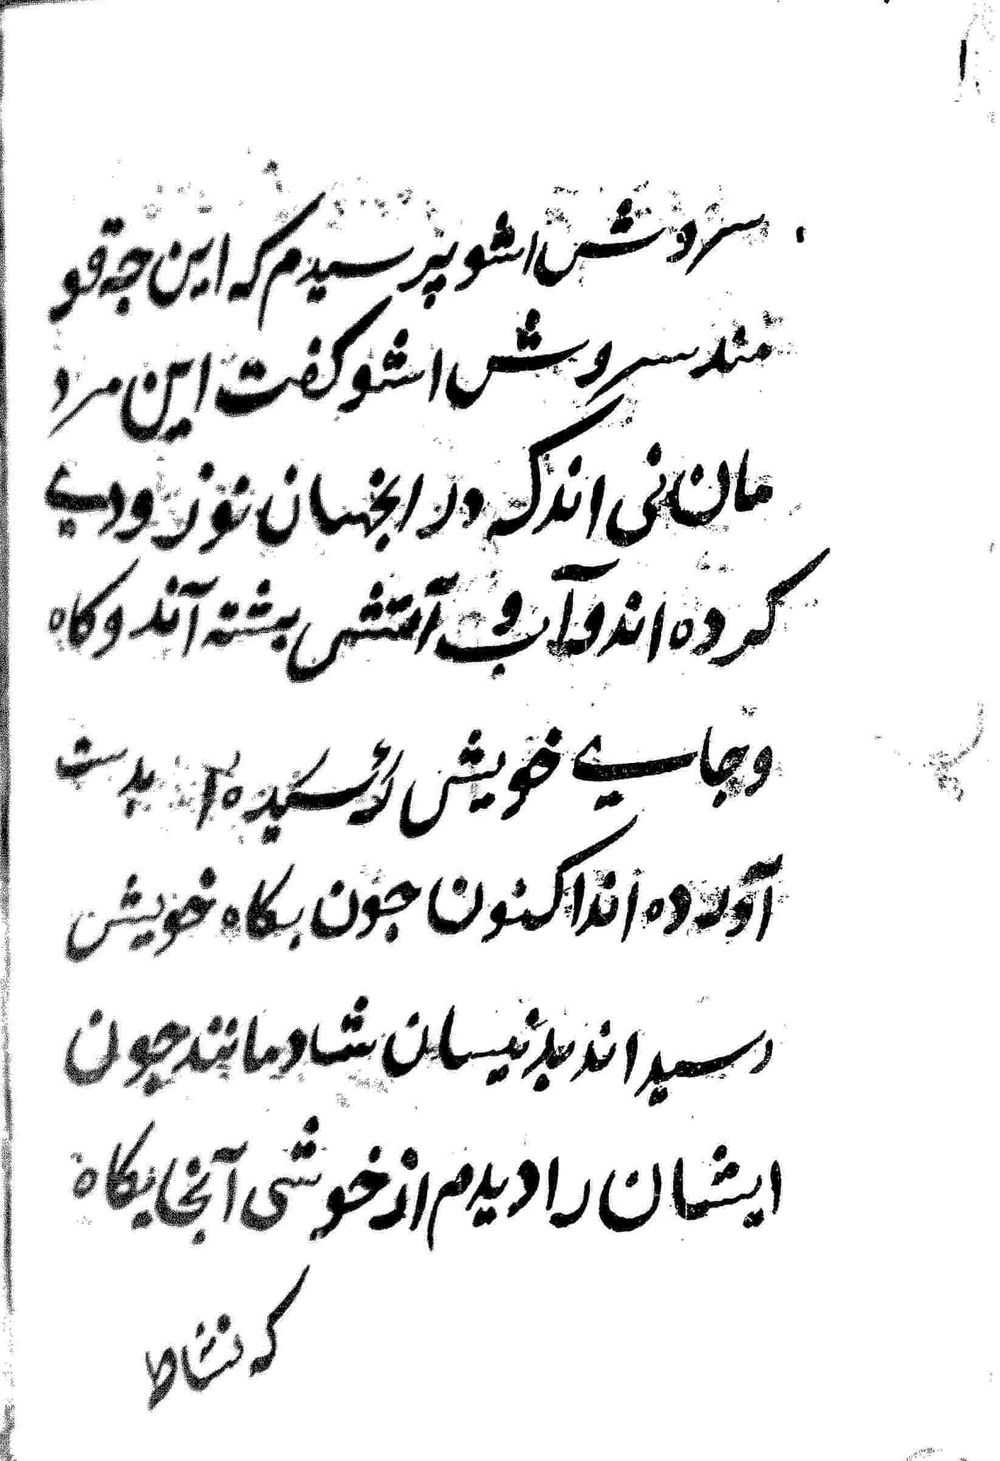 سروش اشو پرسیدم که این جه قو
مند سروش اشو کفت این مرد
مان نی اند که در اینجهان نوزودی
کرده اند و آب و آتش یشته آند و کاه
و جای خویش بدست
آورده اند اکنون جون بکاه خویش
رسید اند بذنیسان شادمانند چون
ایشان را دیدم از خوشی آنجایکاه
که نشاط